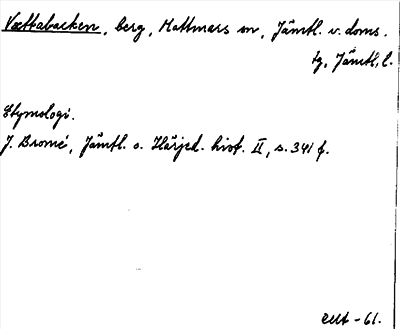 Vættabacken, berg, Mattmars sn, Jämtl. v. doms.
tg, Jämtl, l.
Etymologi.
J. Bromé, Jämtl. o. Härjed. hist. II, s. 341 f.
-61.